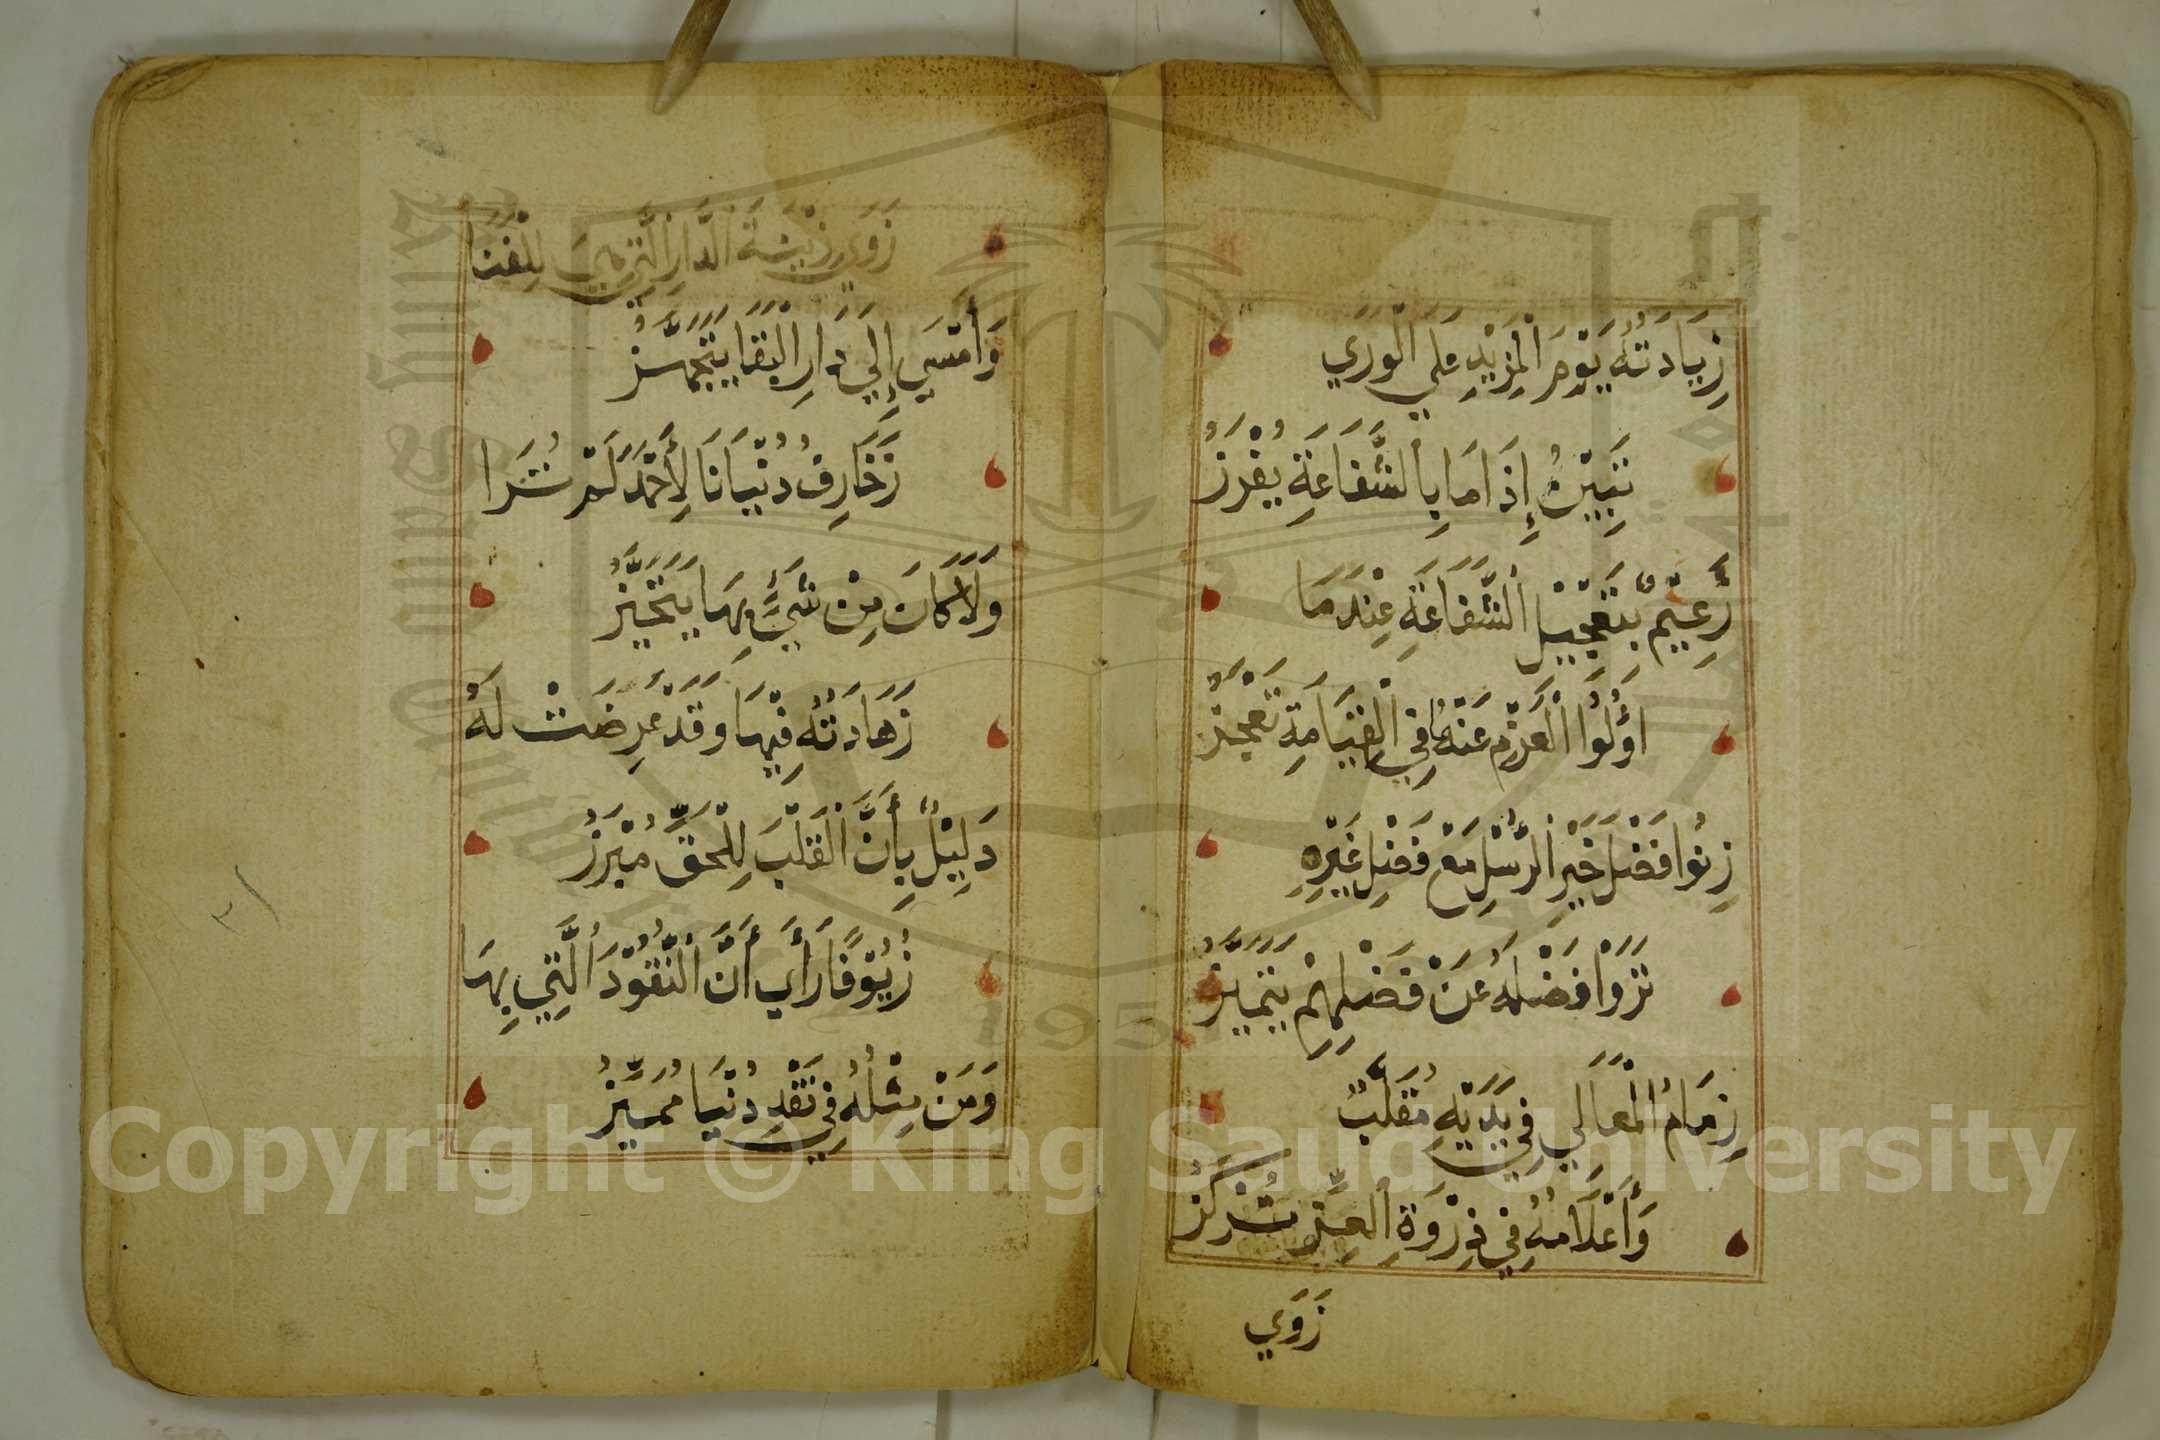 زِيَادَتُهُ يَوْمَ الْمَزِيْدِ عَلَي الْوَرَي
تَبِيْنُ إِذَا مَا بِالشَّفَاعَةِ يُفْرَزُ
زَعِيْمٌ بِتَعْجِيْلِ الشَّفَاعَةِ عِنْدَمَا
اوُلُوا الْعَزْمِ عَنْهُ فِي الْقِيَامَةِ تَعْجَزُ
زِنُوا فَضْلَ خَيْرِ الرُّسْلِ مَعْ فَضْلِ غَيْرِهِ
تَرَوْا فَضْلَهُ عَنْ فَضْلِهِمْ يَتَمَيَّزُ
زِمَامُ الْمَعَالَي فِي يَدَيْهِ مُقَلَّبٌ
وَأَعْلَامُهُ فِي ذِرْوَةِ الْعِزِّ تُرْكَزُ
زَوَي
زَوَي زِيْنَةَ الدَّارِ الَّتِي هِيَ لِلْفَنَا
وَأَمْسَي إِلَي دَارِ الْبَقَا يَتَجَهَّزُ
زَخَارِفُ دُنْيَانَا لِأَحْمَدَ لَمْ تُرَا
وَلَا كَانَ مِنْ شَيْءٍ بِهَا يَتَحَيَّزُ
زَهَادَتُهُ فِيْهَا وَقَدْ عَرِضَتْ لَهُ
دَلِيْلٌ بِأَنَّ الْقَلْبَ لِلْحَقِّ مُبْرَزُ
زُيُوْفًا رَأَي أَنَّ النُّقُوْدَ الَّتِي بِهَا
وَمَنْ مِثْلُهُ فِي نَقْدِ دُنْيَا مُمَيِّزُ
٣١
1957
Copyright © King Saud University